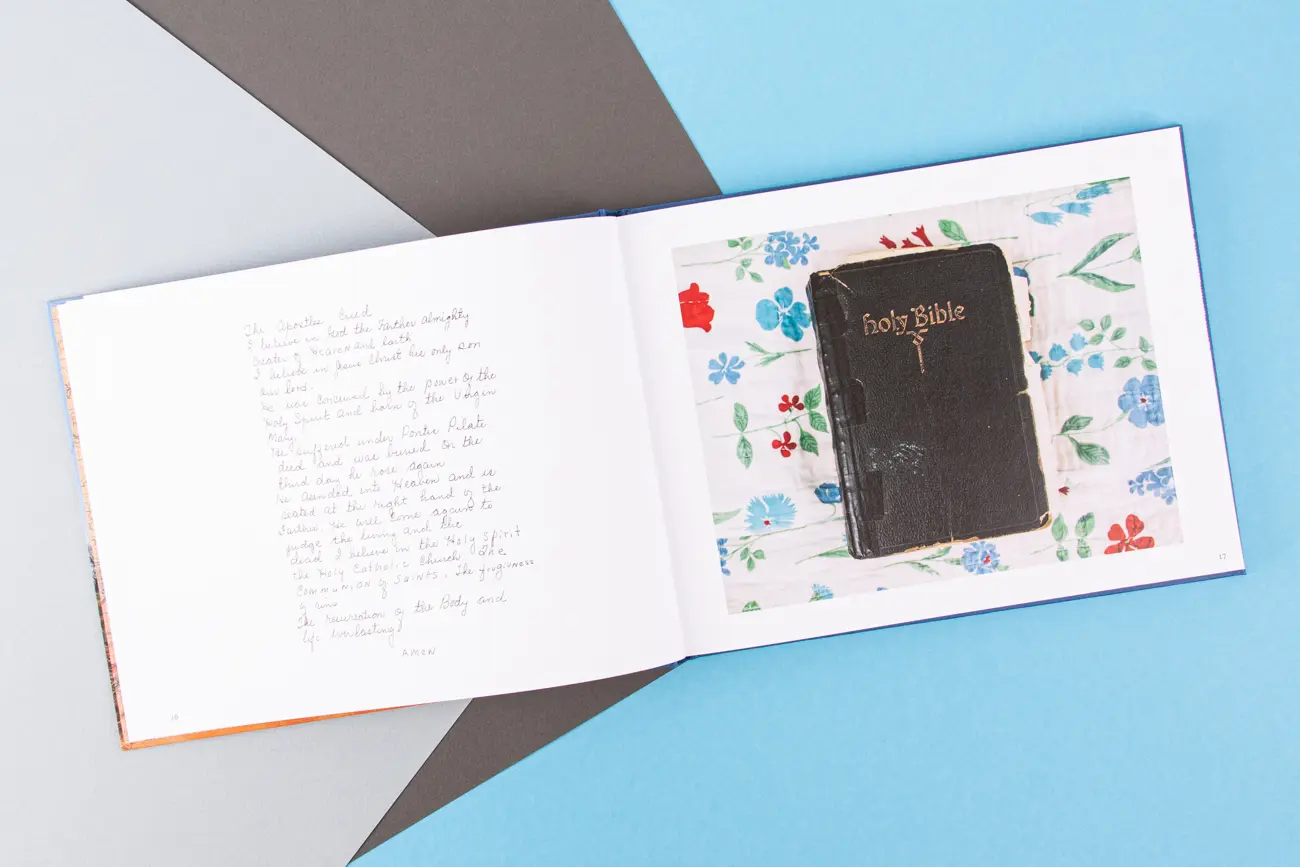 The Apostles Creed
I believe in God the Farther almighty
Creater of Heaven and Earth
I believe in Jesus Christ his only son
our lord.
He was conceived by the power of the
Holy Spirit and born of the Virgin
Mary.
He suffered under Pontis Pilate
died and was buried On the
third day he rose again
he assended into Heaven and is
seated at the right hand of the
Farther. He will come again to
judge the living and the
dead. I believe in the Holy Spirit
the Holy Catholic Church The
Communion of Saints, The
of
The resurection of the Body and
life everlasting
Amen
16
Holy Bible
17